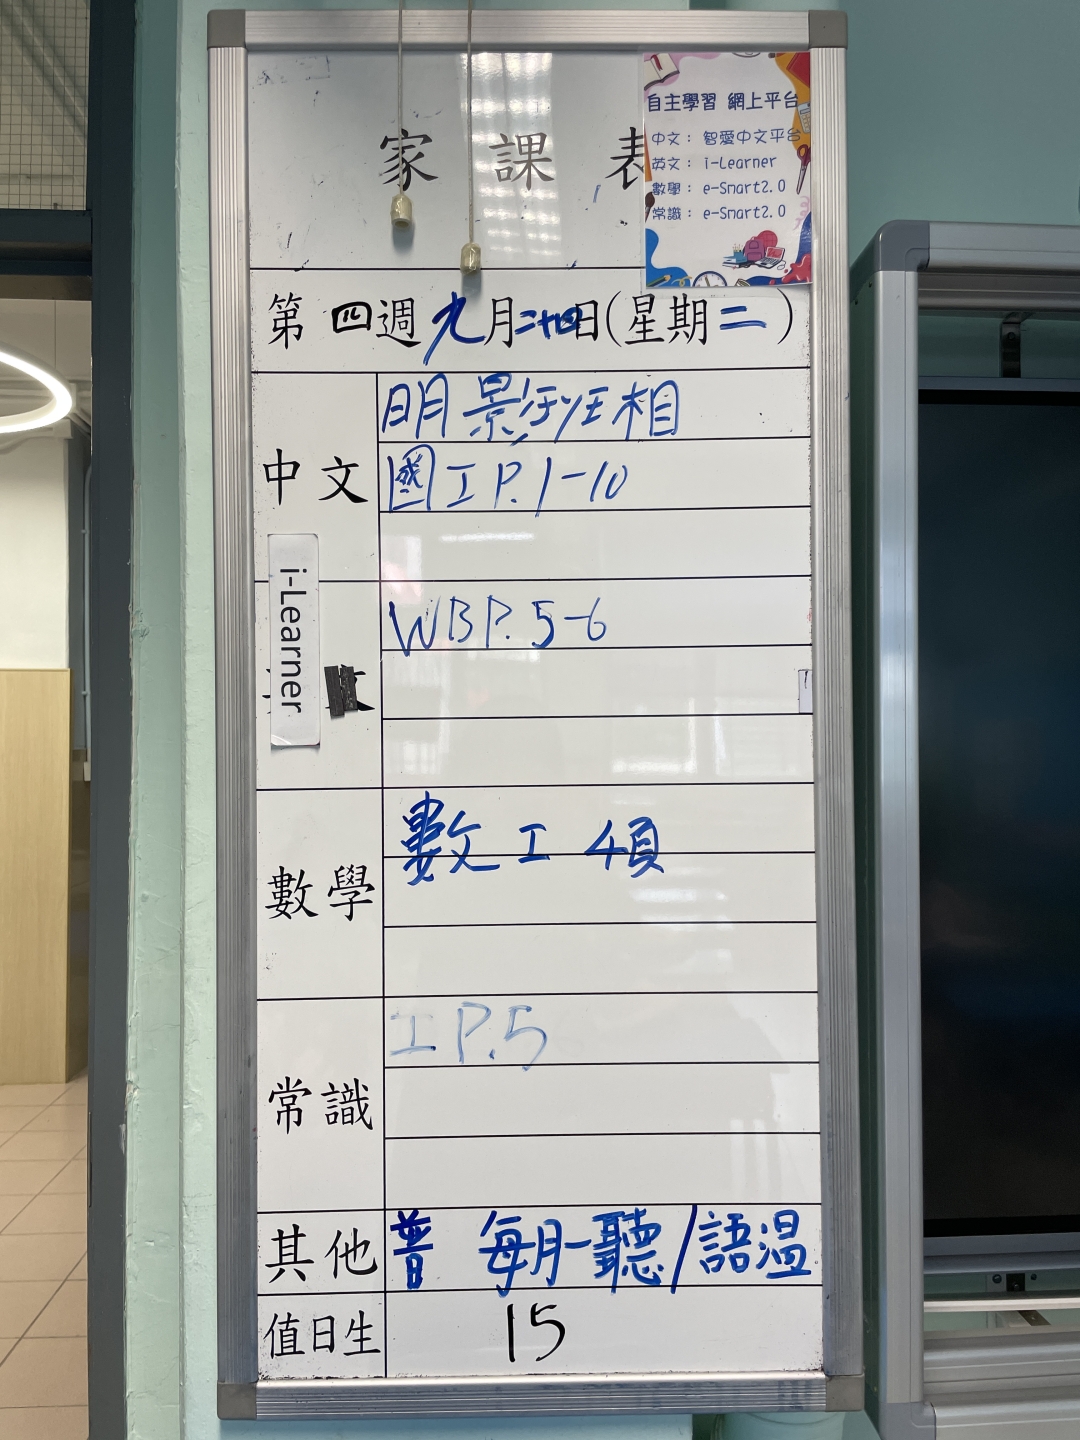 家課表
自主學習 網上平台
中文： 智愛中文平台
英文： i-Learner
數學： e-Smart2.0
常識： e-Smart2.0
第四週九月二十四日(星期二)
中文
明 影 班相
國工 P.1-10
i-Learner
文
WB P.5-6
數學
數工 4頁
常識
工 P.5
其他
普 每月一聽/語溫
值日生
15